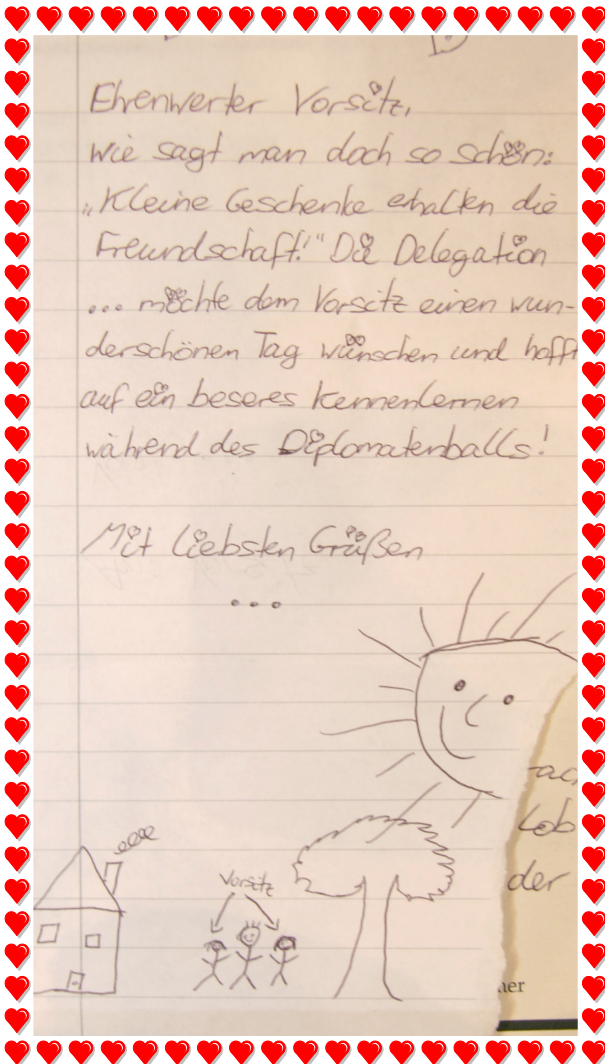 Ehrenwerter Vorsitz,
wie sagt man doch so schön:
„Kleine Geschenke erhalten die
Freundschaft!" Die Delegation
... möchte dem Vorsitz einen wun-
derschönen Tag wünschen und hofft
auf ein beseres kennenlernen
während des Diplomatenballs!
Mit liebsten Grüßen
...
Lob
der
Vorsitz